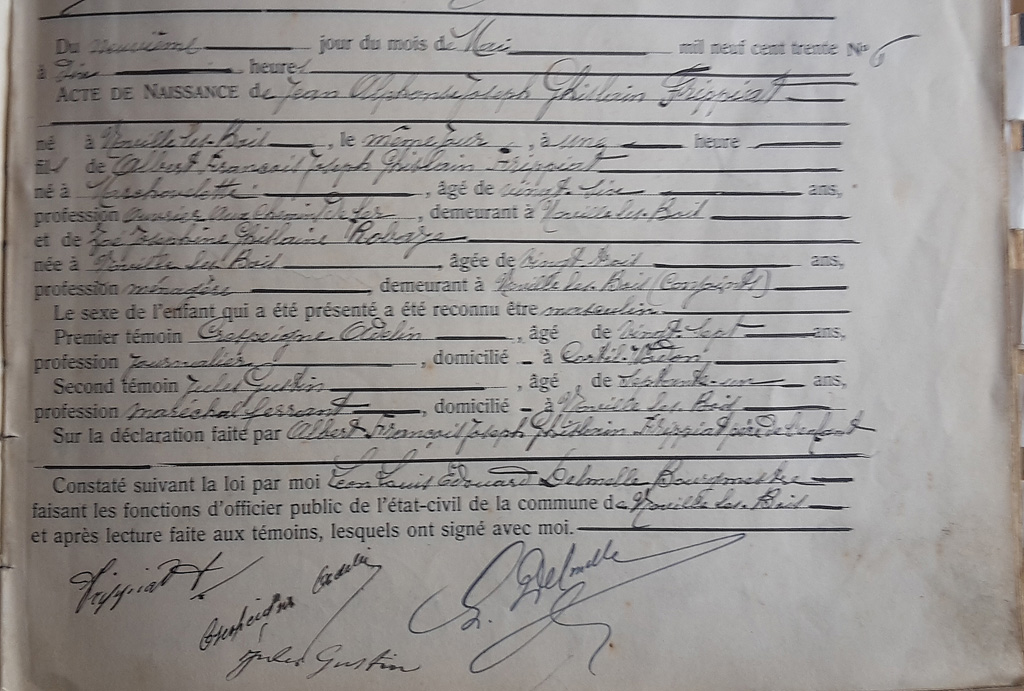 Du neuvième jour du mois de Mai mil neuf cent trente N° 6
à dix heures
ACTE DE NAISSANCE de Jean Alphonse Joseph Ghislain Frippiat
né à Noville les-Bois, le même jour, à une heure
fils de Albert François Joseph Ghislain Frippiat
né à Marchovelette, âgé de vingt-six ans,
profession ouvrier aux Chemins de fer, demeurant à Noville-les-Bois
et de Joséphine Ghislaine
née à Noville les-Bois, âgée de vingt trois ans,
profession ménagère, demeurant à Noville les-Bois (Conjoints)
Le sexe de l'enfant qui a été présenté a été reconnu être masculin.
Premier témoin Crespeigne Adelin, âgé de vingt-sept ans,
profession journalier, domicilié à Cortil-Wodon
Second témoin Jules Gustin, âgé de septante-un ans,
profession maréchal ferrant, domicilié à Noville-les-Bois
Sur la déclaration faite par Albert François Joseph Ghislain Frippiat père de l'enfant
Constaté suivant la loi par moi Léon Louis Edouard Delmelle Bourgmestre
faisant les fonctions d'officier public de l'état-civil de la commune de Noville-les-Bois
et après lecture faite aux témoins, lesquels ont signé avec moi.
Frippiat A
L. Delmelle
Crespeigne Adelin
Jules Gustin